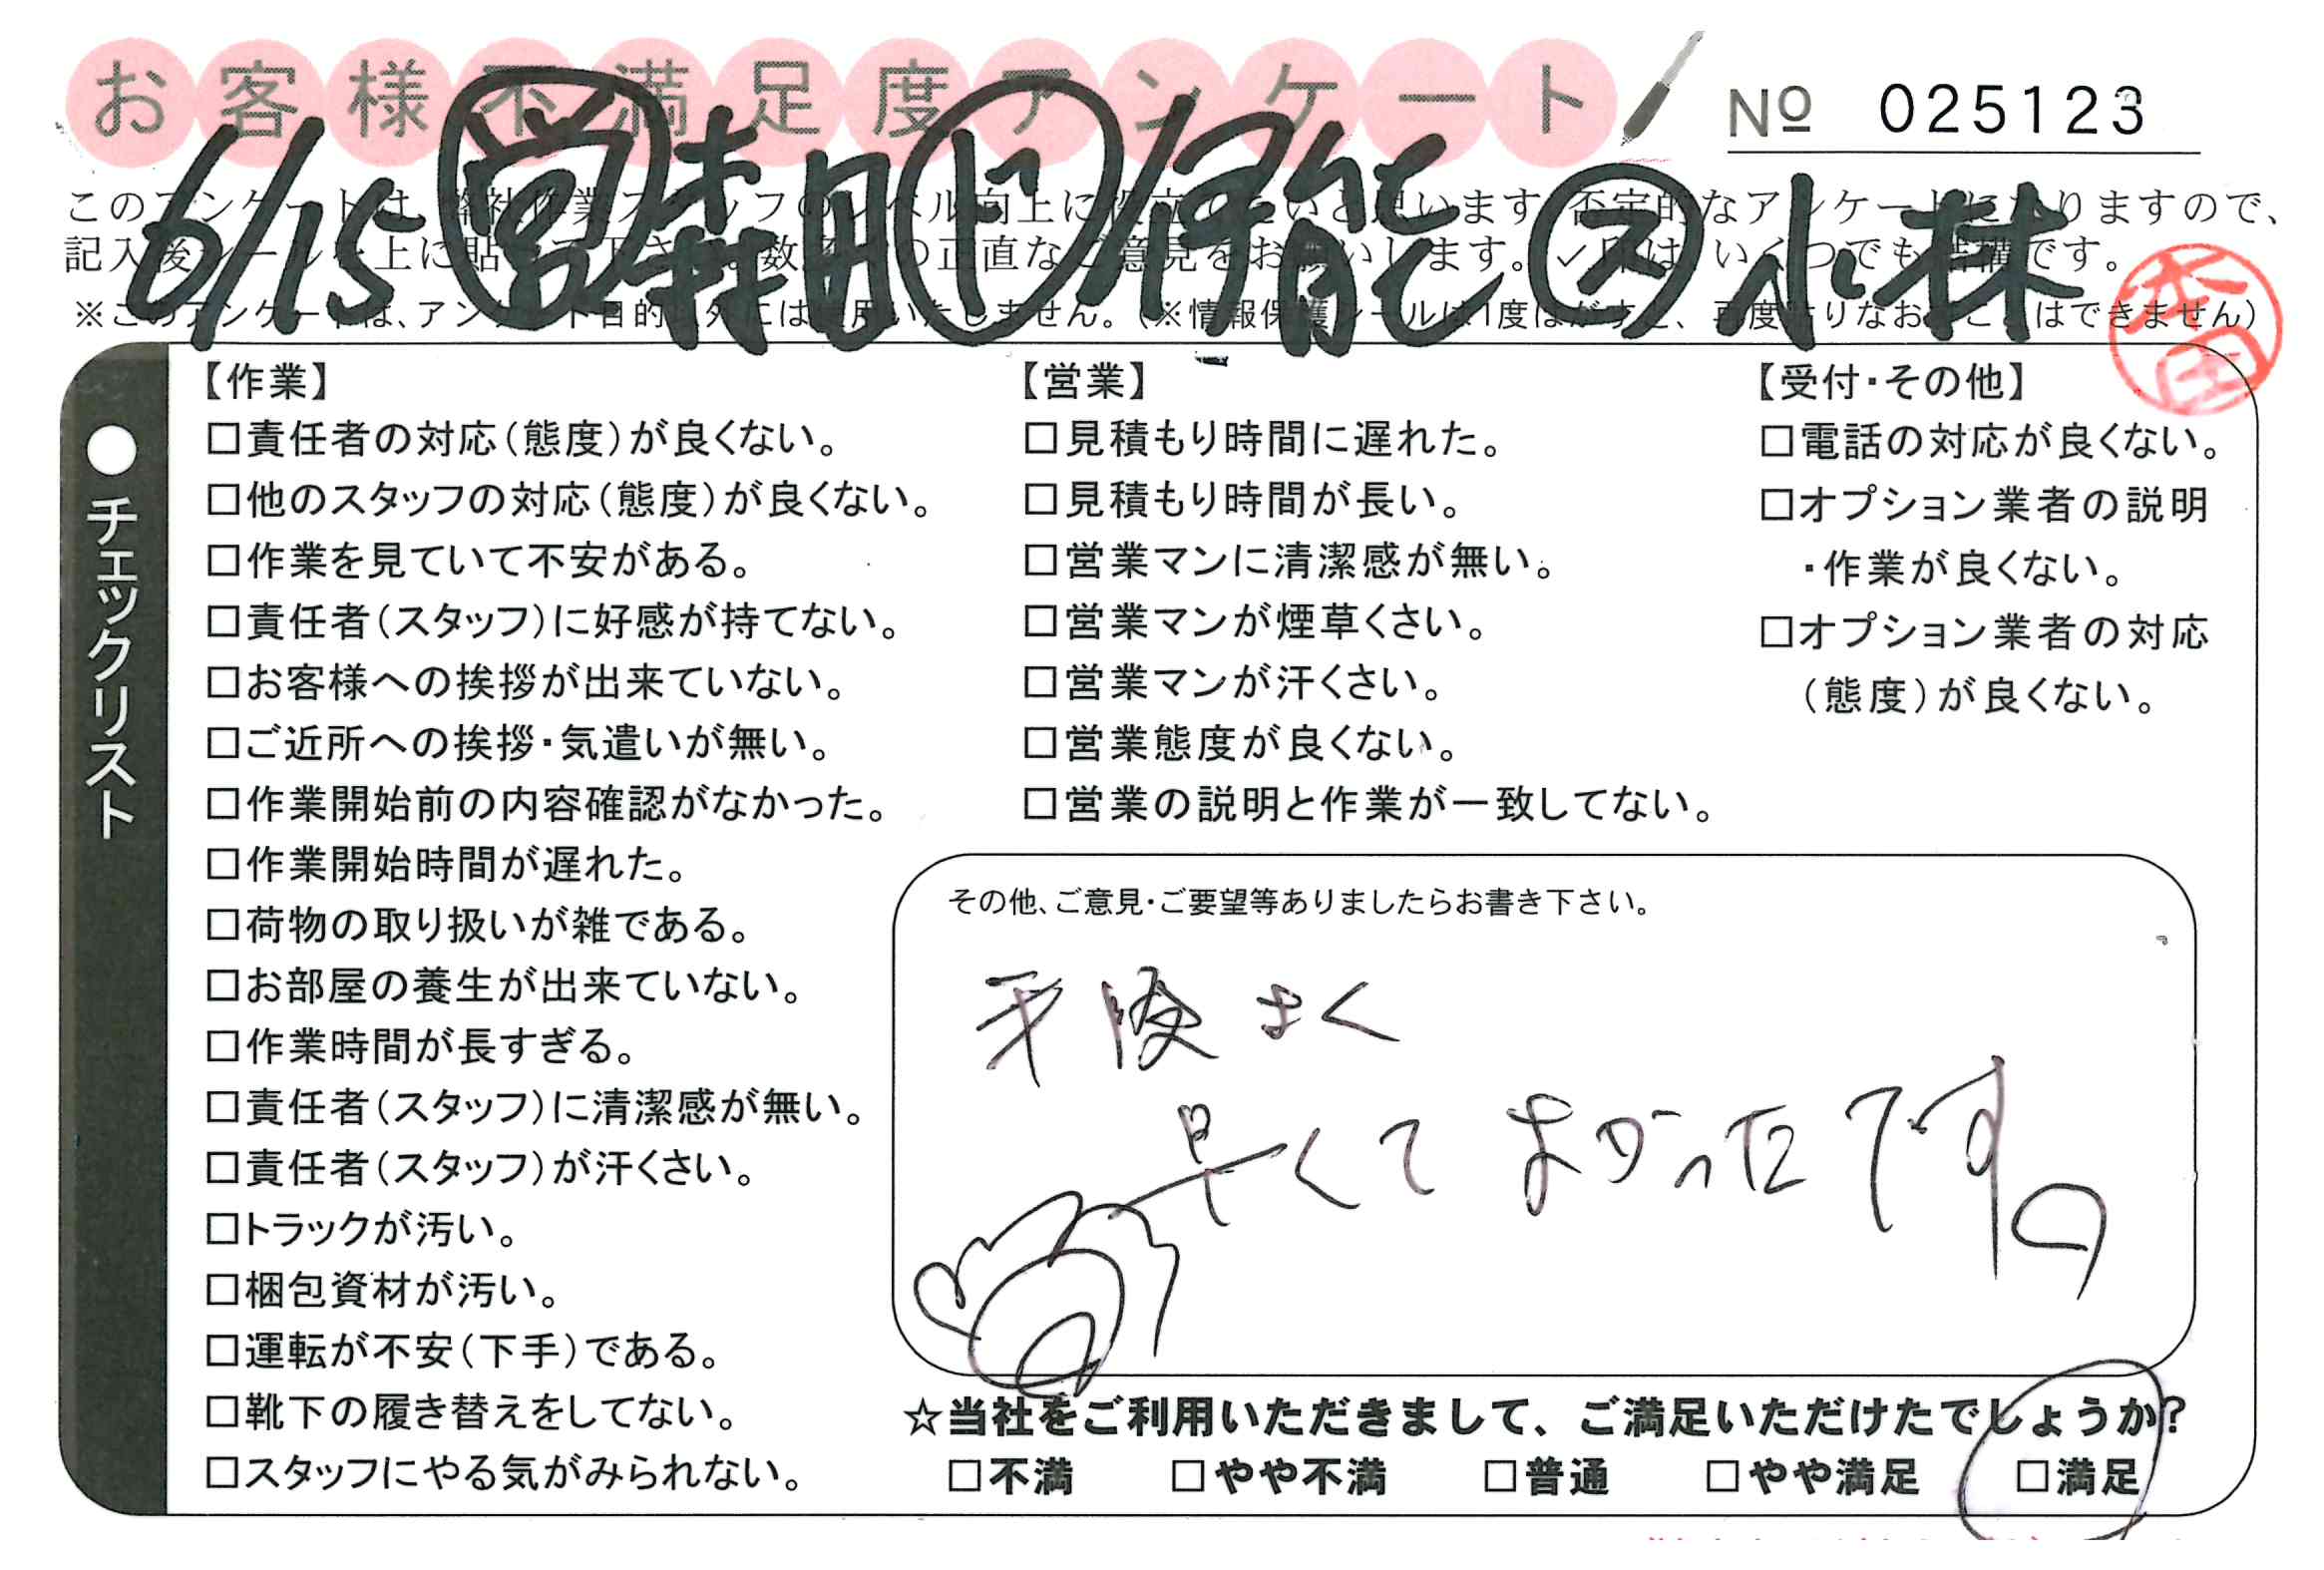 お客様不満足度アンケート
№ 025123
6/15 営 森田 ド 伊能 ス 小林
このアンケートは、弊社作業スタッフのレベル向上に役立てたいと思います。否定的なアンケートになりますので、
記入後シールを上に貼って下さい。数多くの正直なご意見をお願いします。✓印は、いくつでも結構です。
※このアンケートは、アンケート目的以外には使用いたしません。(※情報保護シールは1度はがすと、再度貼りなおすことはできません)
●チェックリスト
【作業】
□責任者の対応(態度)が良くない。
□他のスタッフの対応(態度)が良くない。
□作業を見ていて不安がある。
□責任者(スタッフ)に好感が持てない。
□お客様への挨拶が出来ていない。
□ご近所への挨拶・気遣いが無い。
□作業開始前の内容確認がなかった。
□作業開始時間が遅れた。
□荷物の取り扱いが雑である。
□お部屋の養生が出来ていない。
□作業時間が長すぎる。
□責任者(スタッフ)に清潔感が無い。
□責任者(スタッフ)が汗くさい。
□トラックが汚い。
□梱包資材が汚い。
□運転が不安(下手)である。
□靴下の履き替えをしてない。
□スタッフにやる気がみられない。
【営業】
□見積もり時間に遅れた。
□見積もり時間が長い。
□営業マンに清潔感が無い。
□営業マンが煙草くさい。
□営業マンが汗くさい。
□営業態度が良くない。
□営業の説明と作業が一致してない。
【受付・その他】
□電話の対応が良くない。
□オプション業者の説明
・作業が良くない。
□オプション業者の対応
(態度)が良くない。
その他、ご意見・ご要望等ありましたらお書き下さい。
手際よく
早くてよかったです。
☆当社をご利用いただきまして、ご満足いただけたでしょうか?
□不満 □やや不満 □普通 □やや満足 □満足